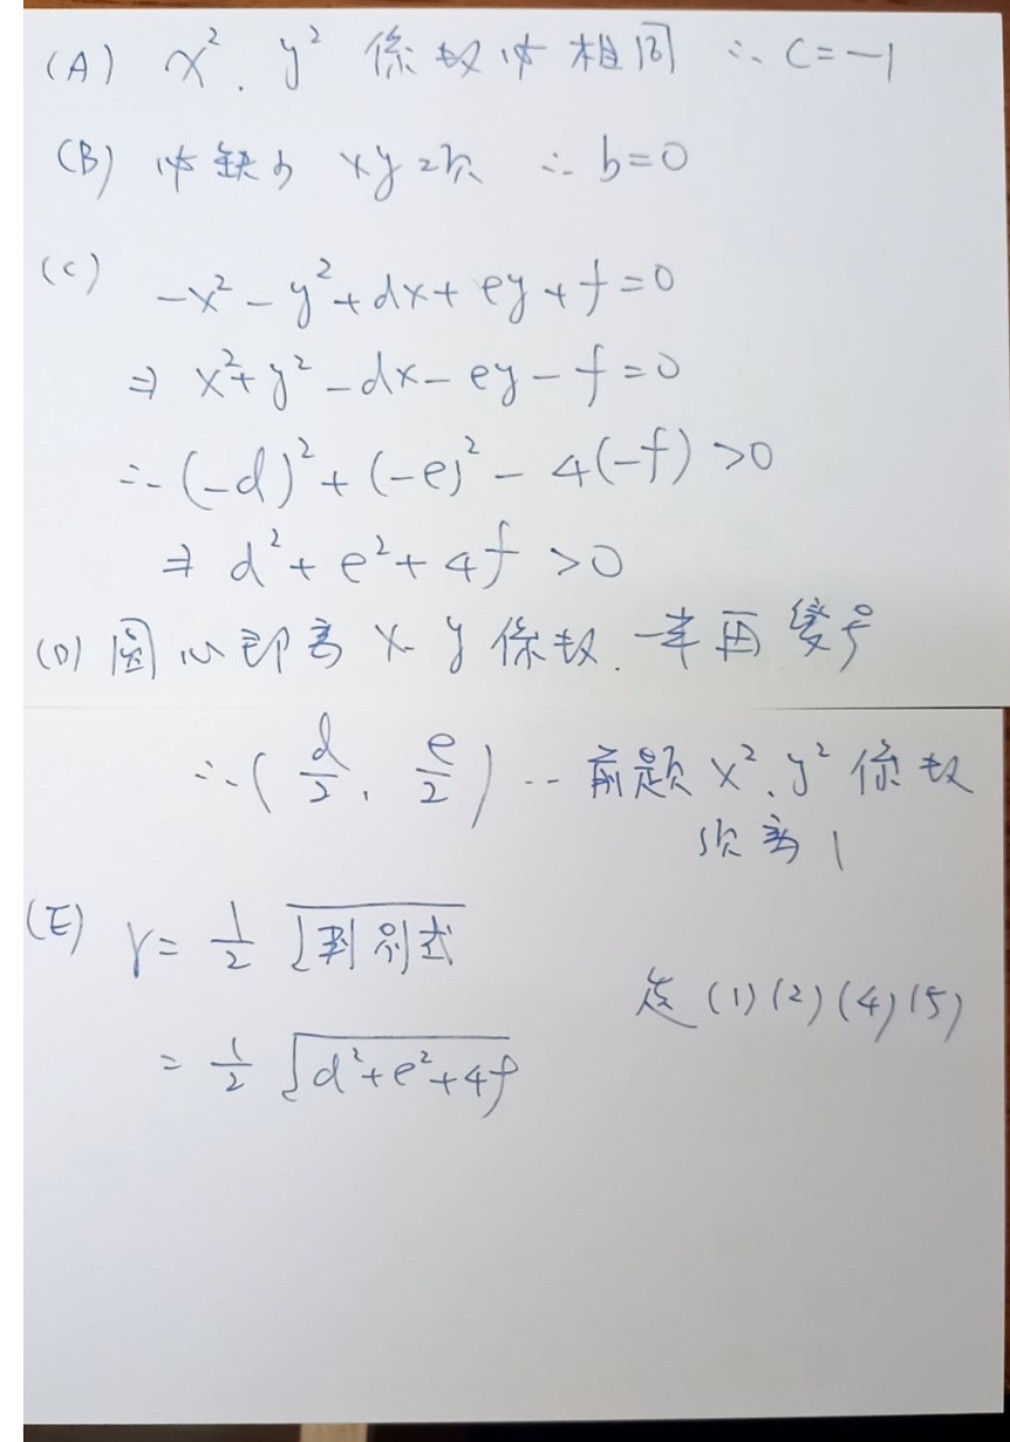 (A) x²、y² 係數必相同 ∴ c = -1
(B) 必缺少 xy 2次 ∴ b = 0
(C) -x² - y² + dx + ey + f = 0
⇒ x² + y² - dx - ey - f = 0
∴ (-d)² + (-e)² - 4(-f) > 0
⇒ d² + e² + 4f > 0
(D) 圓心即為 x、y 係數、一半再變号
∴ (d/2, e/2) -- 前題 x²、y² 係數
須為 1
(E) r = 1/2 √判別式
= 1/2 √d² + e² + 4f
選 (1) (2) (4) (5)